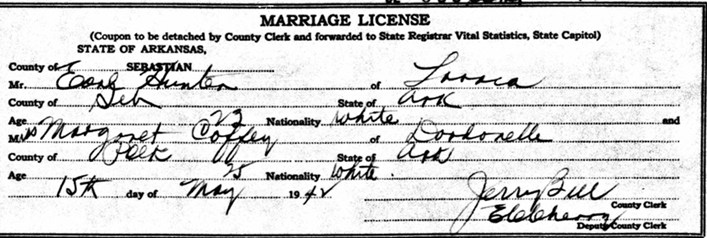 MARRIAGE LICENSE
(Coupon to be detached by County Clerk and forwarded to State Registrar Vital Statistics, State Capitol)
STATE OF ARKANSAS,
County of SEBASTIAN
Mr. Earl Hunter of Lavaca
County of Seb State of Ark
Age Nationality White and
Mrs Margaret Coffey of Dardanelle
County of State of Ark
Age 25 Nationality White
15th day of May 1942
Jerry Bell
County Clerk
Deputy County Clerk